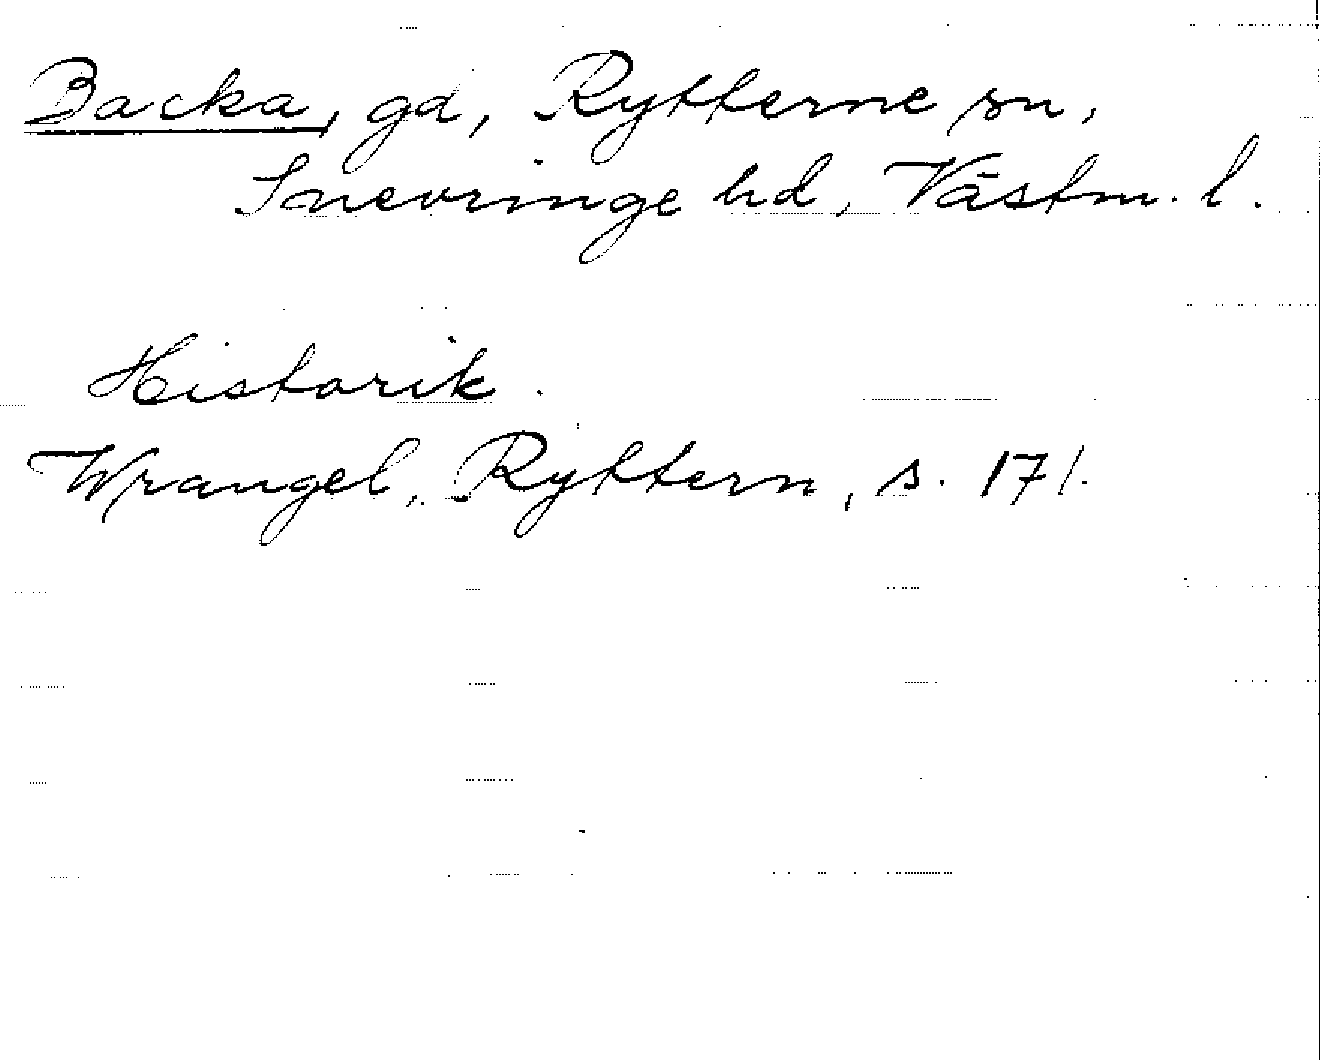 Backa, gd, Rytterne sn,
Snevringe hd, Västm. l.
Historik.
Wrangel, Ryttern, s. 171.